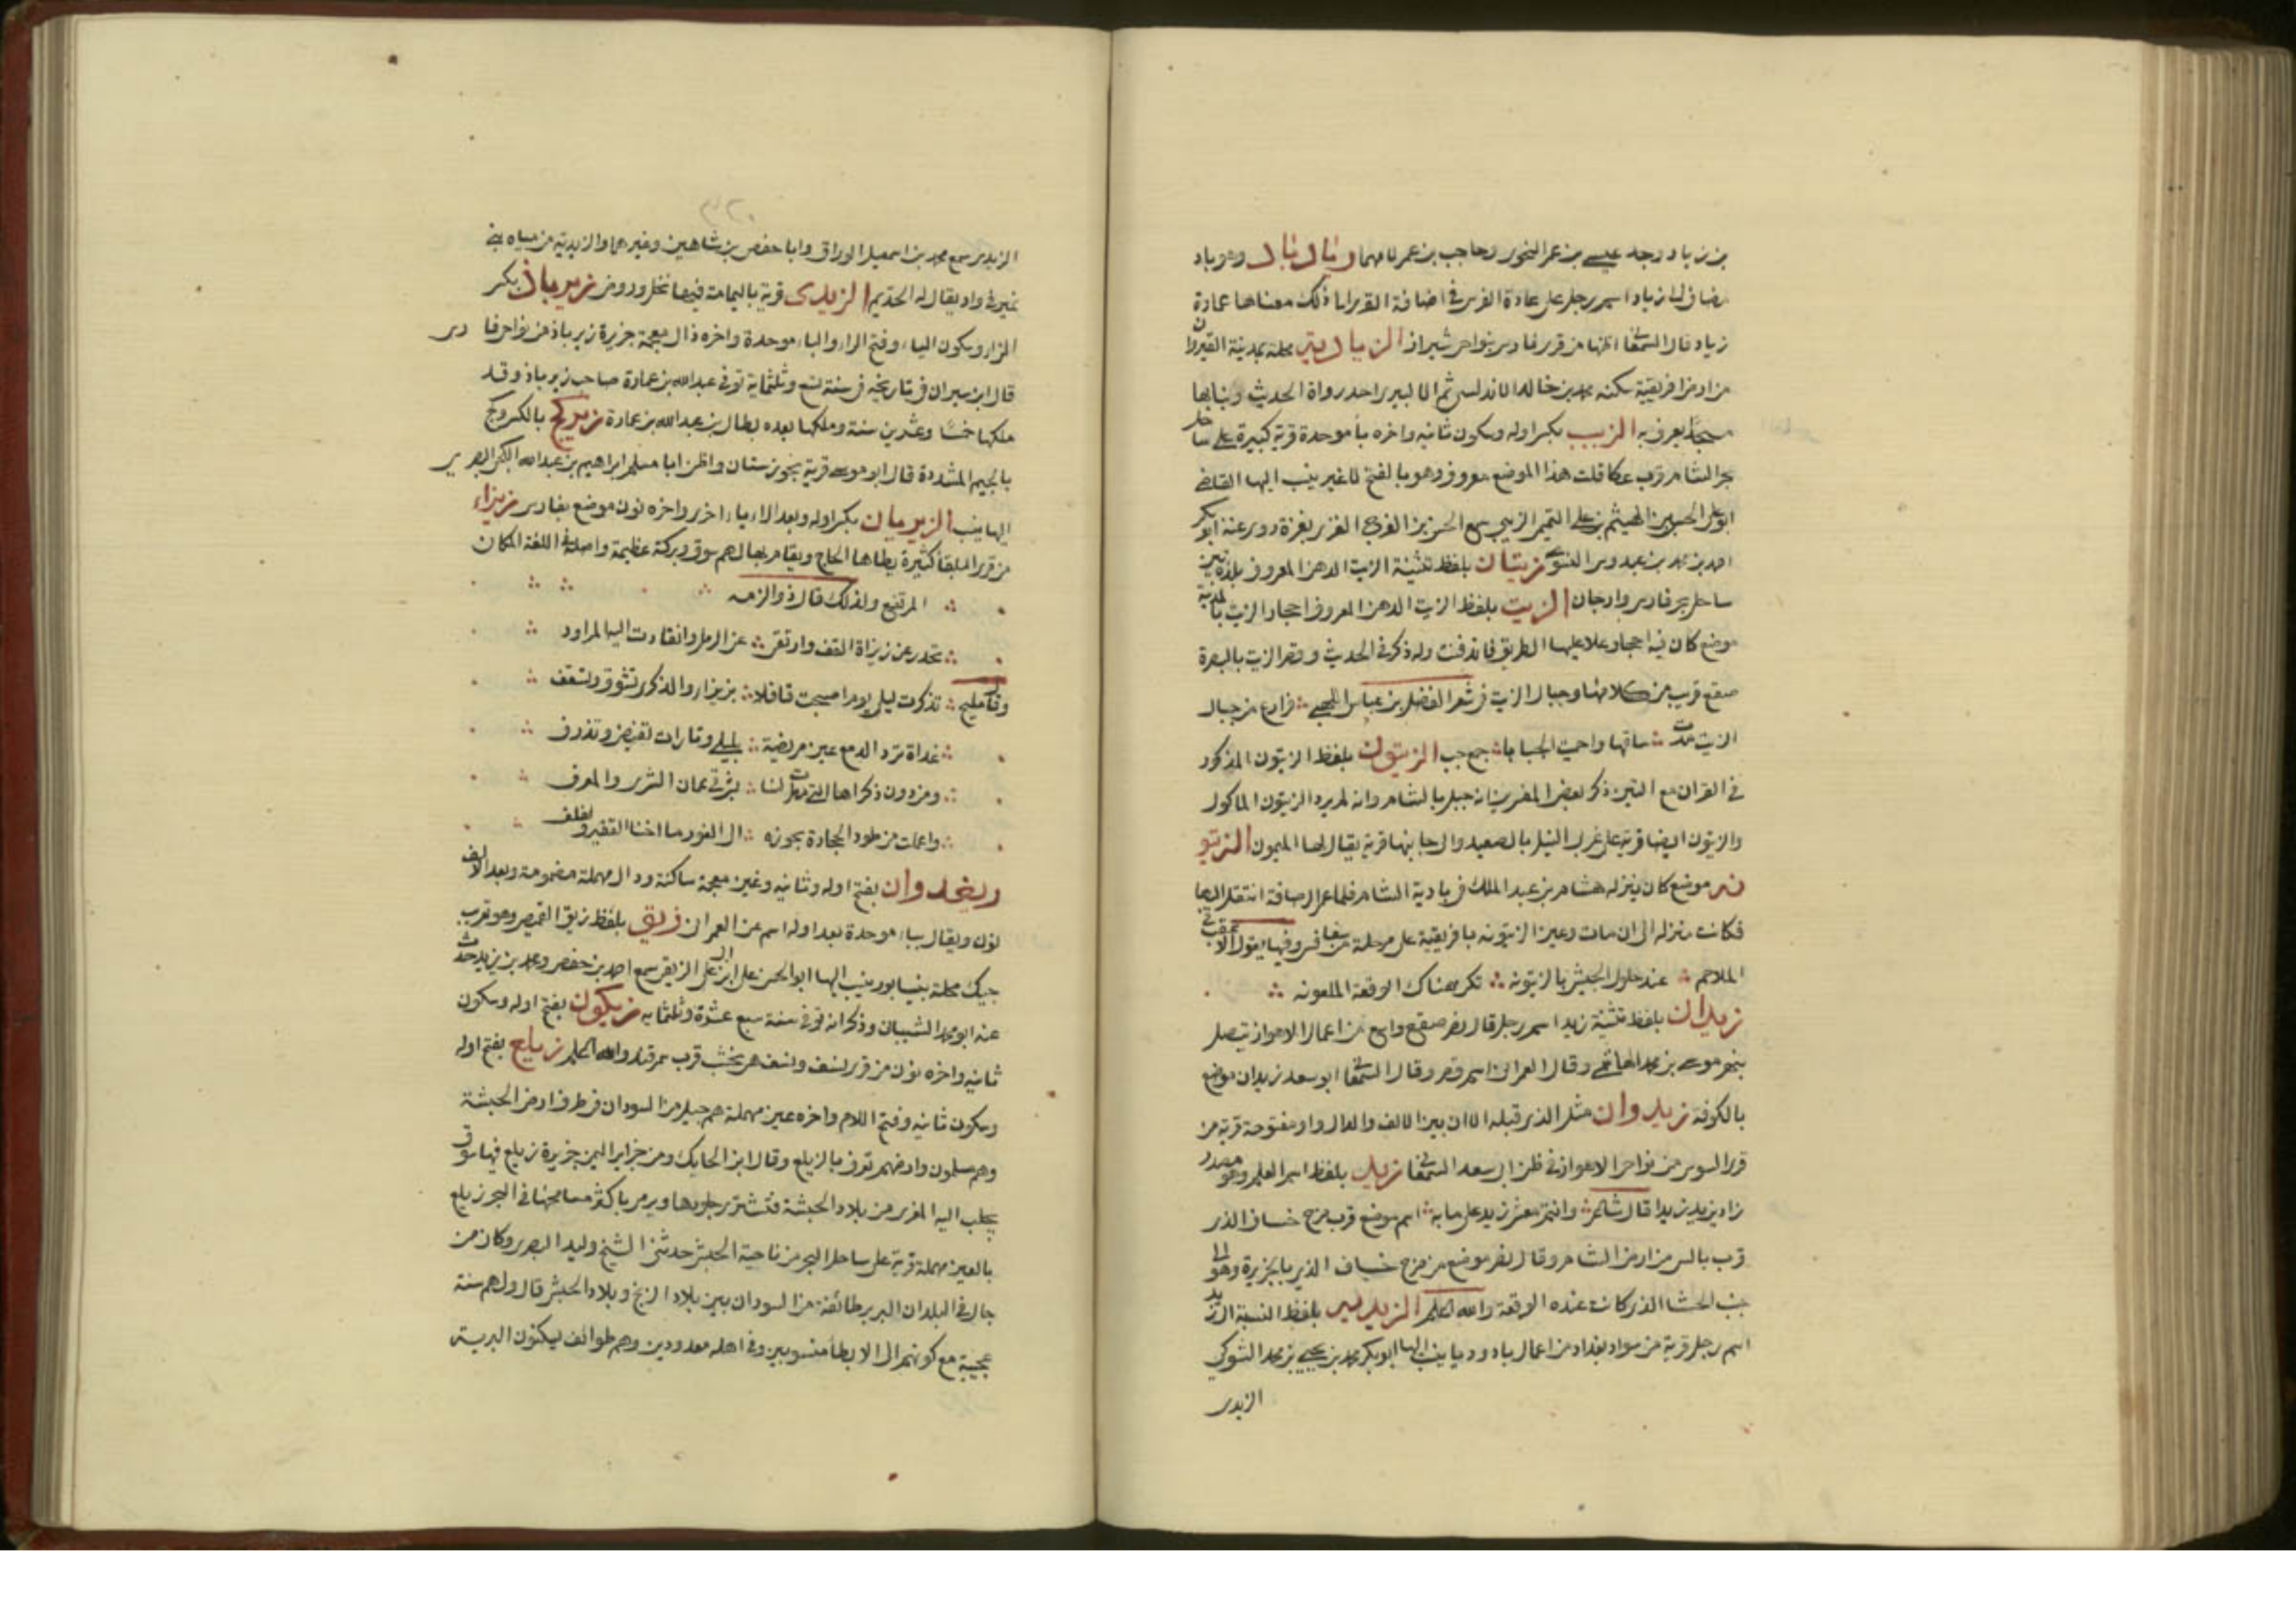 بن زياد وجد عيسى بن عمر النحوى وحاجب بن عمر لامهما زياد اباد وهو باد
مضاف الى زياد اسم رجل على عادة الفرس فى اضافة القرى الى ذلك معناها عمارة
زياد قال السمعانى اظنها من قرى فارس بنواحى شيراز الزياديتى محلة بمدينة القيروان
من ارض افريقية سكنه محمد بن خالد الاندلسى ثم الالبيرى احد رواة الحديث وبنا بها
مسجدا يعرف به الزيب بكسر اوله وسكون ثانيه واخره باء موحدة قرية كبيرة على ساحل
بحر الشام قرب عكا قلت هذا الموضع معروف وهو بالفتح لا غير ينسب اليها القاضى
ابو على الحسن بن الهيثم بن على التميمى الزيبى سمع الحسن بن الفرج الغزى بغزة روى عنه ابو بكر
احمد بن محمد بن عبدوس النسوى زيتان بلفظ تثنية الزيت الدهن المعروف بلدة بين
ساحل بحر فارس وارجان الزيت بلفظ الزيت الدهن المعروف احجار الزيت بالمدينة
موضع كان فيه احجار علا عليها الطريق فاندفنت وله ذكر فى الحديث وقصر الزيت بالبصرة
صقع قريب من كلائها وجبال الزيت فى شعر الفضل بن عباس اللهبى فارع من جبال
الزيت مدت ساقها واحمت الجبابا جمع جب الزيتون بلفظ الزيتون المذكور
فى القران مع التين ذكر بعض المفسرين انه جبل بالشام وانه لم يرد الزيتون الماكول
والزيتون ايضا قرية على غربى النيل بالصعيد والى جانبها قرية يقال لها الميمون الزيتو
نه موضع كان ينزله هشام بن عبد الملك فى بادية الشام فلما عمر الرصافة انتقل اليها
فكانت منزله الى ان مات وعين الزيتونه بافريقية على مرحلة من سفاقس وفيها يقول
الملاحم عند حلول الجيش بالزيتونه تكر هناك الوقعة الملعونه
زيدان بلفظ تثنية زيد اسم رجل قال نصر صقع واسع من اعمال الاهواز يتصل
بنهر موسى بن محمد الهاشمى وقال العمرانى اسم قصر وقال السمعانى ابو سعد زيدان موضع
بالكوفة زيدوان مثل الذى قبله الا ان بين الالف والدال واو مفتوحة قرية من
قرى السوس من نواحى الاهواز فى ظن ابى سعد السمعانى زيد بلفظ اسم العلم وهو مصدر
زاد يزيد زيدا قال شاعر وانتم معشر زيد على ماية اسم موضع قرب مرج خساف الذى
قرب بالس من ارض الشام وقال نصر موضع من مرج خساف الذى بالجزيرة وهو الى
جنب الحشا الذى كانت عنده الوقعة والله اعلم الزيديه بلفظ النسبة الى زيد
اسم رجل قرية من سواد بغداد من اعمال بادوريا ينسب اليها ابو بكر محمد بن يحيى بن محمد الشوكى
الزيدى
الزيدى سمع محمد بن اسمعيل الوراق وابا حفص بن شاهين وغيرهما والزيدية من مياه بنى
نمير فى واد يقال له الحذيم الزيدى قرية باليمامة فيها نخل وروض زيرباذ بكسر
الزاى وسكون الياء وفتح الراء والباء موحدة واخره ذال معجمة جزيرة زيرباذ من نواحى فارس
قال ابن سيران فى تاريخه فى سنة تسع وثلثماية توفى عبد الله بن عمارة صاحب زيرباذ وقد
ملكها خمسا وعشرين سنة وملكها بعده بطال بن عبد الله بن عمارة زيركج بالكسر وكج
بالجيم المشددة قال ابو موسى قرية بخوزستان واظن ابا مسلم ابراهيم بن عبد الله الكجى البصرى
اليها ينسب الزيريان بكسر اوله وبعد الراء ياء اخرى واخره نون موضع بفارس زيزاء
من قرى البلقاء كثيرة يطاها الحاج ويقام بها لهم سوق وبركة عظيمة واصله فى اللغة المكان
المرتفع ولذلك قال ذو الرمه
تحدر عن زيزاة القف وارتقى عن الرمل وانقادت اليها المراود
وقال مليح تذكرت ليلى يوم اصبحت قافلا بزيزاء والذكرى تشوق وتشعف
غداة ترد الدمع عين مريضة بليلى وتارات تفيض وتذرف
ومن دون ذكراها التى خطرت لنا بشرقى عمان الثرى والمعرف
واعلت من طود الحجارة بحوزه الى الغور ما اخنا الفقير ولفلف
ريغدوان بفتح اوله وثانيه وغين معجمة ساكنة ودال مهملة مضمومة وبعد الالف
نون ويقال بباء موحدة بعد اوله اسم عن العمرانى زيق بلفظ زيق القميص وهو تعرب
جيك محلة بنيسابور ينسب اليها ابو الحسن على ابن على الزيقى سمع احمد بن حفص ومحمد بن يزيد حدث
عنه ابو محمد الشيبانى وذكر انه توفى سنة سبع عشرة وثلثمايه زيكون بفتح اوله وسكون
ثانيه واخره نون من قرى نسف ونسف هى نخشب قرب سمرقند والله اعلم زيلع بفتح اوله
وسكون ثانيه وفتح اللام واخره عين مهملة هم جيل من السودان فى طرف ارض الحبشة
وهم مسلمون وارضهم تعرف بالزيلع وقال ابن الحايك ومن جزاير اليمن جزيرة زيلع فيها سوق
يجلب اليه المعزى من بلاد الحبشة فتشترى جلودها ويرمى باكثر مسامحتها فى البحر زيلع
بالعين مهملة قرية على ساحل البحر من ناحية الحبش حدثنى الشيخ وليد البصرى وكان ممن
جال فى البلدان البربر طائفة من السودان بين بلاد الزنج وبلاد الحبش قال ولهم سنة
عجيبة مع كونهم الى الاسلام منسوبين وفى اهله معدودين وهم طوائف يسكنون البرية